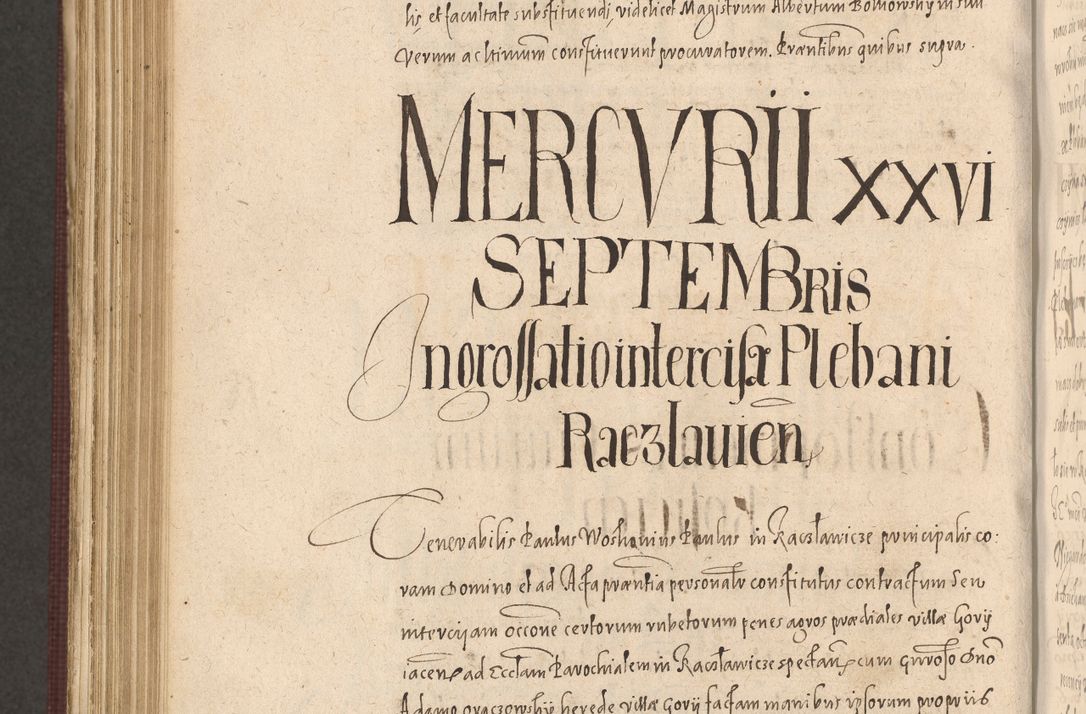 lis et facultate substituendi videlicet Magistrum Albertum
Verum ac ltimum constituerunt procuratorem. Præntibus quibus supra.
MERCVRII XXVI
SEPTEMBRIS
Ingrossatio intercisæ Plebani
Raczlauien
Venerabilis Paulus Paulus in Raczławicze principalis co:
ram Domino et ad Acta præntia personalr constitutus contractum seu
intercisam occone certorum rubetorum penes agros prædiales villæ Gorij
iacen ad Ecclam Parochialem in Raczławicze spectan cum Gnroso Dno
Adamo herede villæ Gorij factam manibus ipsorum proprijs